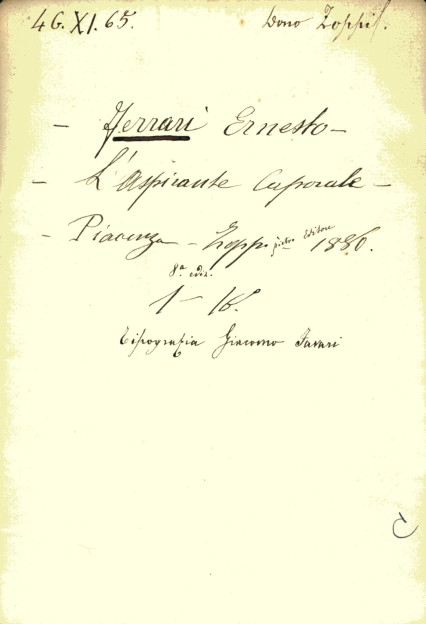 4G.XI.65. Dono Zoppi
– Ferrari Ernesto –
– L'Aspirante Caporale –
– Piacenza – Zoppi pietro Editore 1886.
8ª ediz.
1 – 16.
Tipografia Giacomo Favari
C